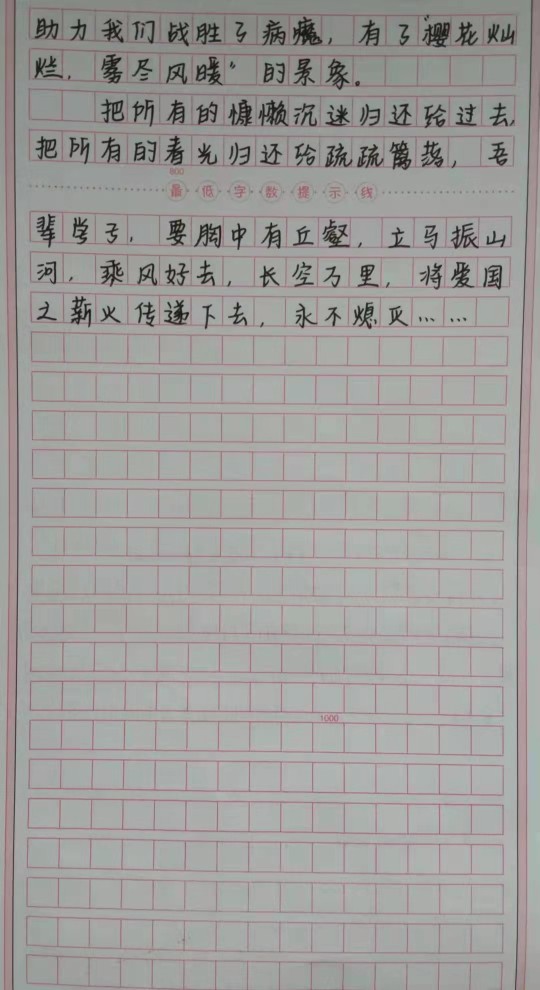 助力我们战胜了病魔，有了“樱花灿
烂，雾尽风暖”的景象。
把所有的慵懒沉迷归还给过去，
把所有的春光归还给疏疏篱落，吾
800
最低字数提示线
辈学子，要胸中有丘壑，立马振山
河，乘风好去，长空万里，将爱国
之薪火传递下去，永不熄灭……
1000